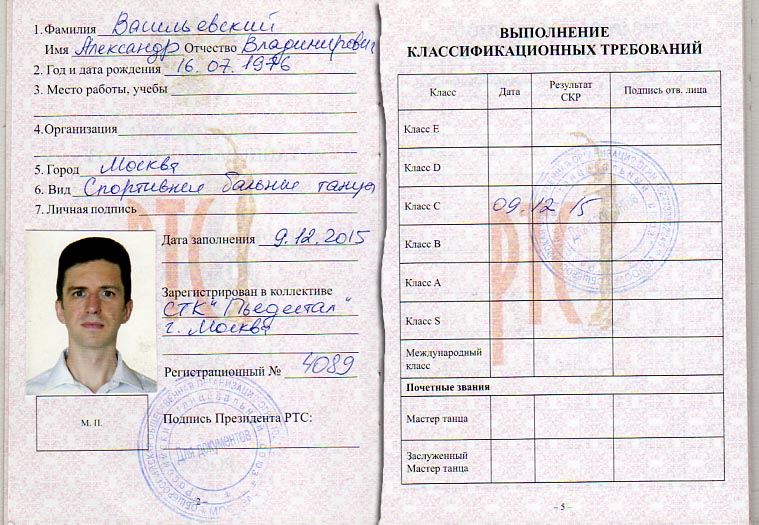 1. Фамилия Васильевский
Имя Александр Отчество Владимирович
2. Год и дата рождения 16.07.1976
3. Место работы, учебы
4.Организация
5. Город Москва
6. Вид Спортивные бальные танцы
7. Личная подпись
Дата заполнения 9.12.2015
Зарегистрирован в коллективе
СТК "Пьедестал"
г. Москва
Регистрационный № 4089
М. П.
Подпись Президента РТС:
Для документов
– 2 –
ВЫПОЛНЕНИЕ
КЛАССИФИКАЦИОННЫХ ТРЕБОВАНИЙ
Класс Дата Результат СКР Подпись отв. лица
Класс E
Класс D
Класс C 09.12.15
Класс B
Класс A
Класс S
Международный
класс
Почетные звания
Мастер танца
Заслуженный
Мастер танца
– 5 –
РТС